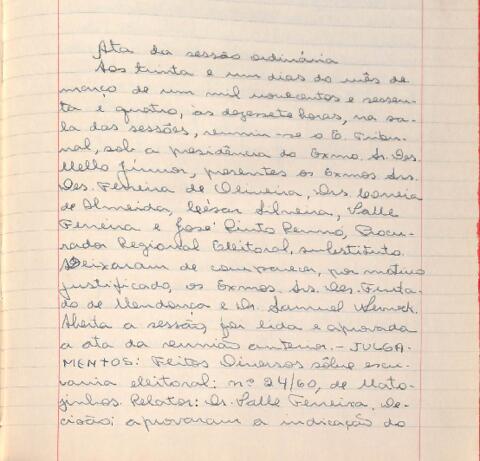 Ata da sessão ordinária
Aos trinta e um dias do mês de
março de um mil novecentos e sessen-
ta e quatro, às dezessete horas, na sa-
la das sessões, reuniu-se o E. Tribu-
nal, sob a presidência do Exmo. Sr. Des.
Mello Júnior, presentes os Exmos. Srs.
Des. Ferreira de Oliveira, Drs. Correia
de Almeida, César Silveira, Valle
Ferreira e José Pinto Rennó, Procu-
rador Regional Eleitoral, substituto.
Deixaram de comparecer, por motivo
justificado, os Exmos. Srs. Des. Furta-
do de Mendonça e Dr. Samuel Werneck.
Aberta a sessão, foi lida e aprovada
a ata da reunião anterior. - JULGA-
MENTOS: Feitos Diversos sôbre escri-
vania eleitoral: nº 24/60, de Mato-
zinhos. Relator: Dr. Valle Ferreira. De-
cisão: aprovaram a indicação do